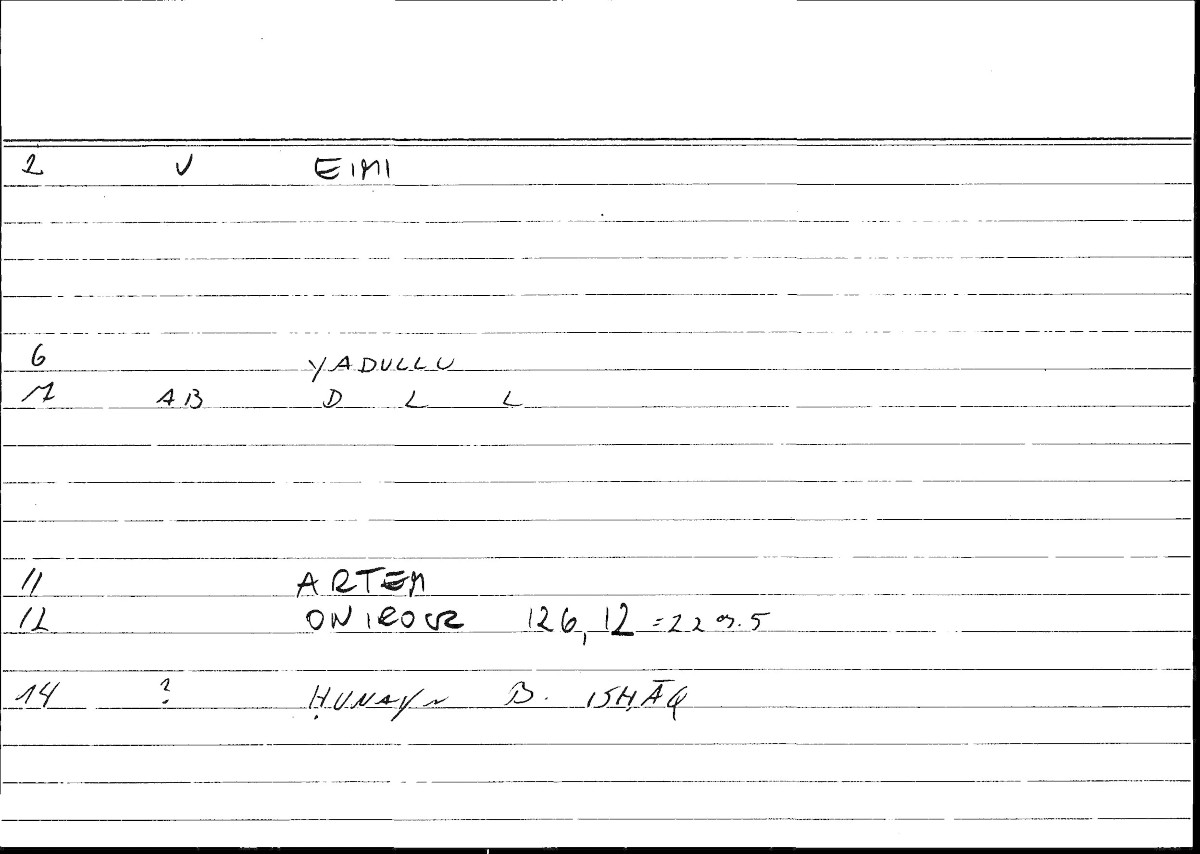 2 V EIMI
6 YADULLU
7 AB D L L
11 ARTEM
12 ONIROCR 126,12 =229.5
14 ? ḤUNAYN B. ISḤĀQ